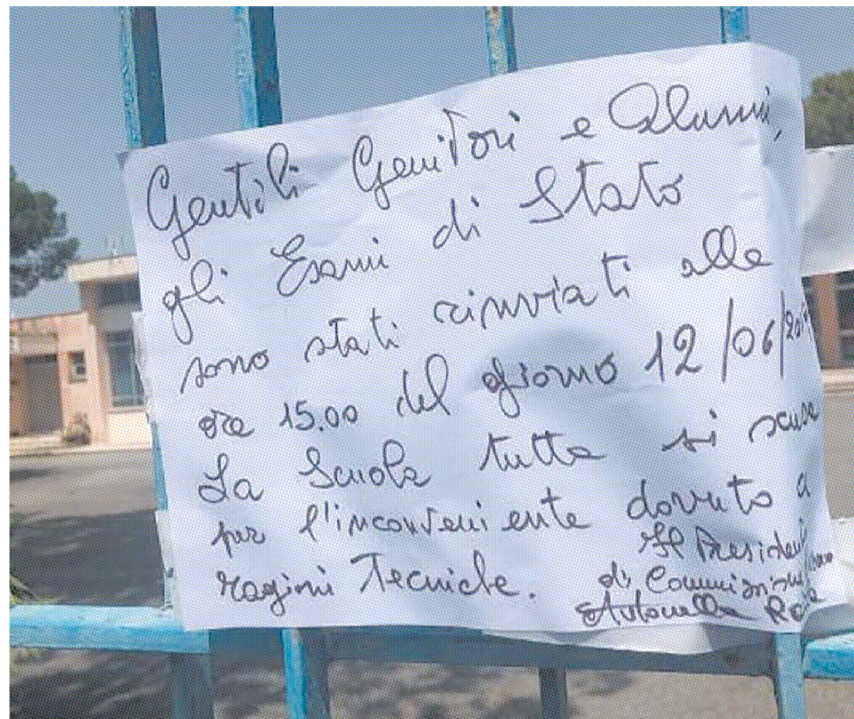 Gentili Genitori e Alunni,
gli Esami di Stato
sono stati rinviati alle
ore 15.00 del giorno 12/06/
La Scuola tutta si scusa
per l'inconveniente dovuto a
ragini Tecniche.
Il Presidente
di Commissione
Antonella